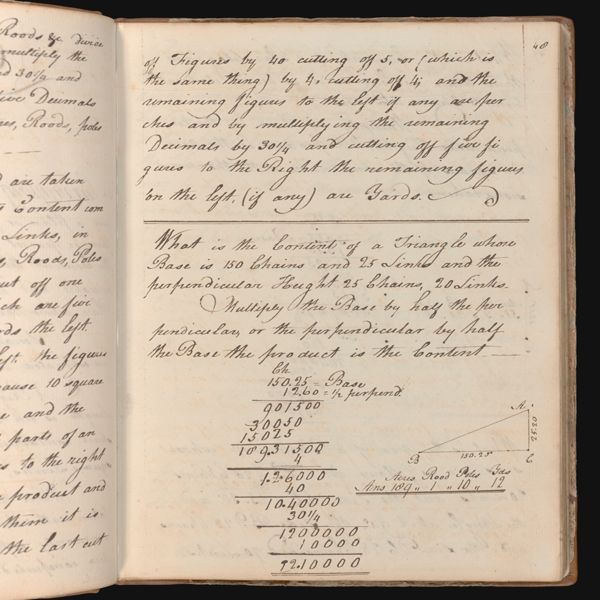 Roods &c divide
multiply the
nd 30¼ and
five Decimals
res, Roods, poles
d are taken
Content com
Links, in
s, Roods, Poles
ut off one
ich are five
rds the left.
left the figures
cause 10 square
e and the
parts of an
s to the right
product and
them it is
the last cut
48
off Figures by 40 cutting off 5, or (which is
the same thing) by 4, cutting off 4; and the
remaining figures to the left if any are per
ches and by multiplying the remaining
Decimals by 30¼ and cutting off five fi
gures to the Right the remaining figures
on the left, (if any) are Yards.
What is the Content of a Triangle whose
Base is 150 Chains and 25 Links and the
perpendicular Height 25 Chains, 20 Links.
Multiply the Base by half the per
pendicular, or the perpendicular by half
the Base the product is the Content
Ch
150.25 = Base
12.60 = ½ perpend.
901500
30050
15025
189.31500
4
1.26000
40
10.40000
30¼
1200000
10000
12.10000
A
25.20
B 150.25 C
Acres Rood Poles Yds
Ans 189 „ 1 „ 10 „ 12